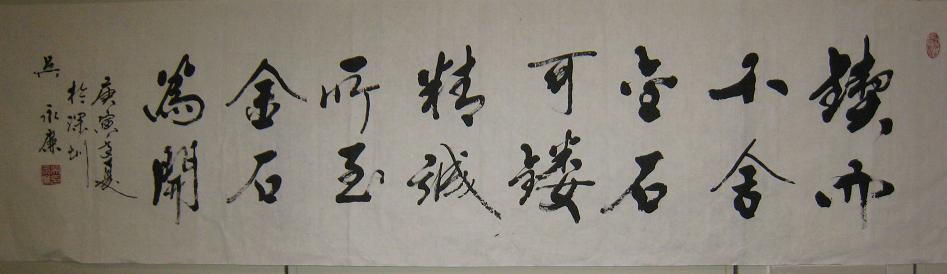 鍥而
不舍
金石
可鏤
精誠
所至
金石
為開
庚寅孟夏
於深圳
吳永廉